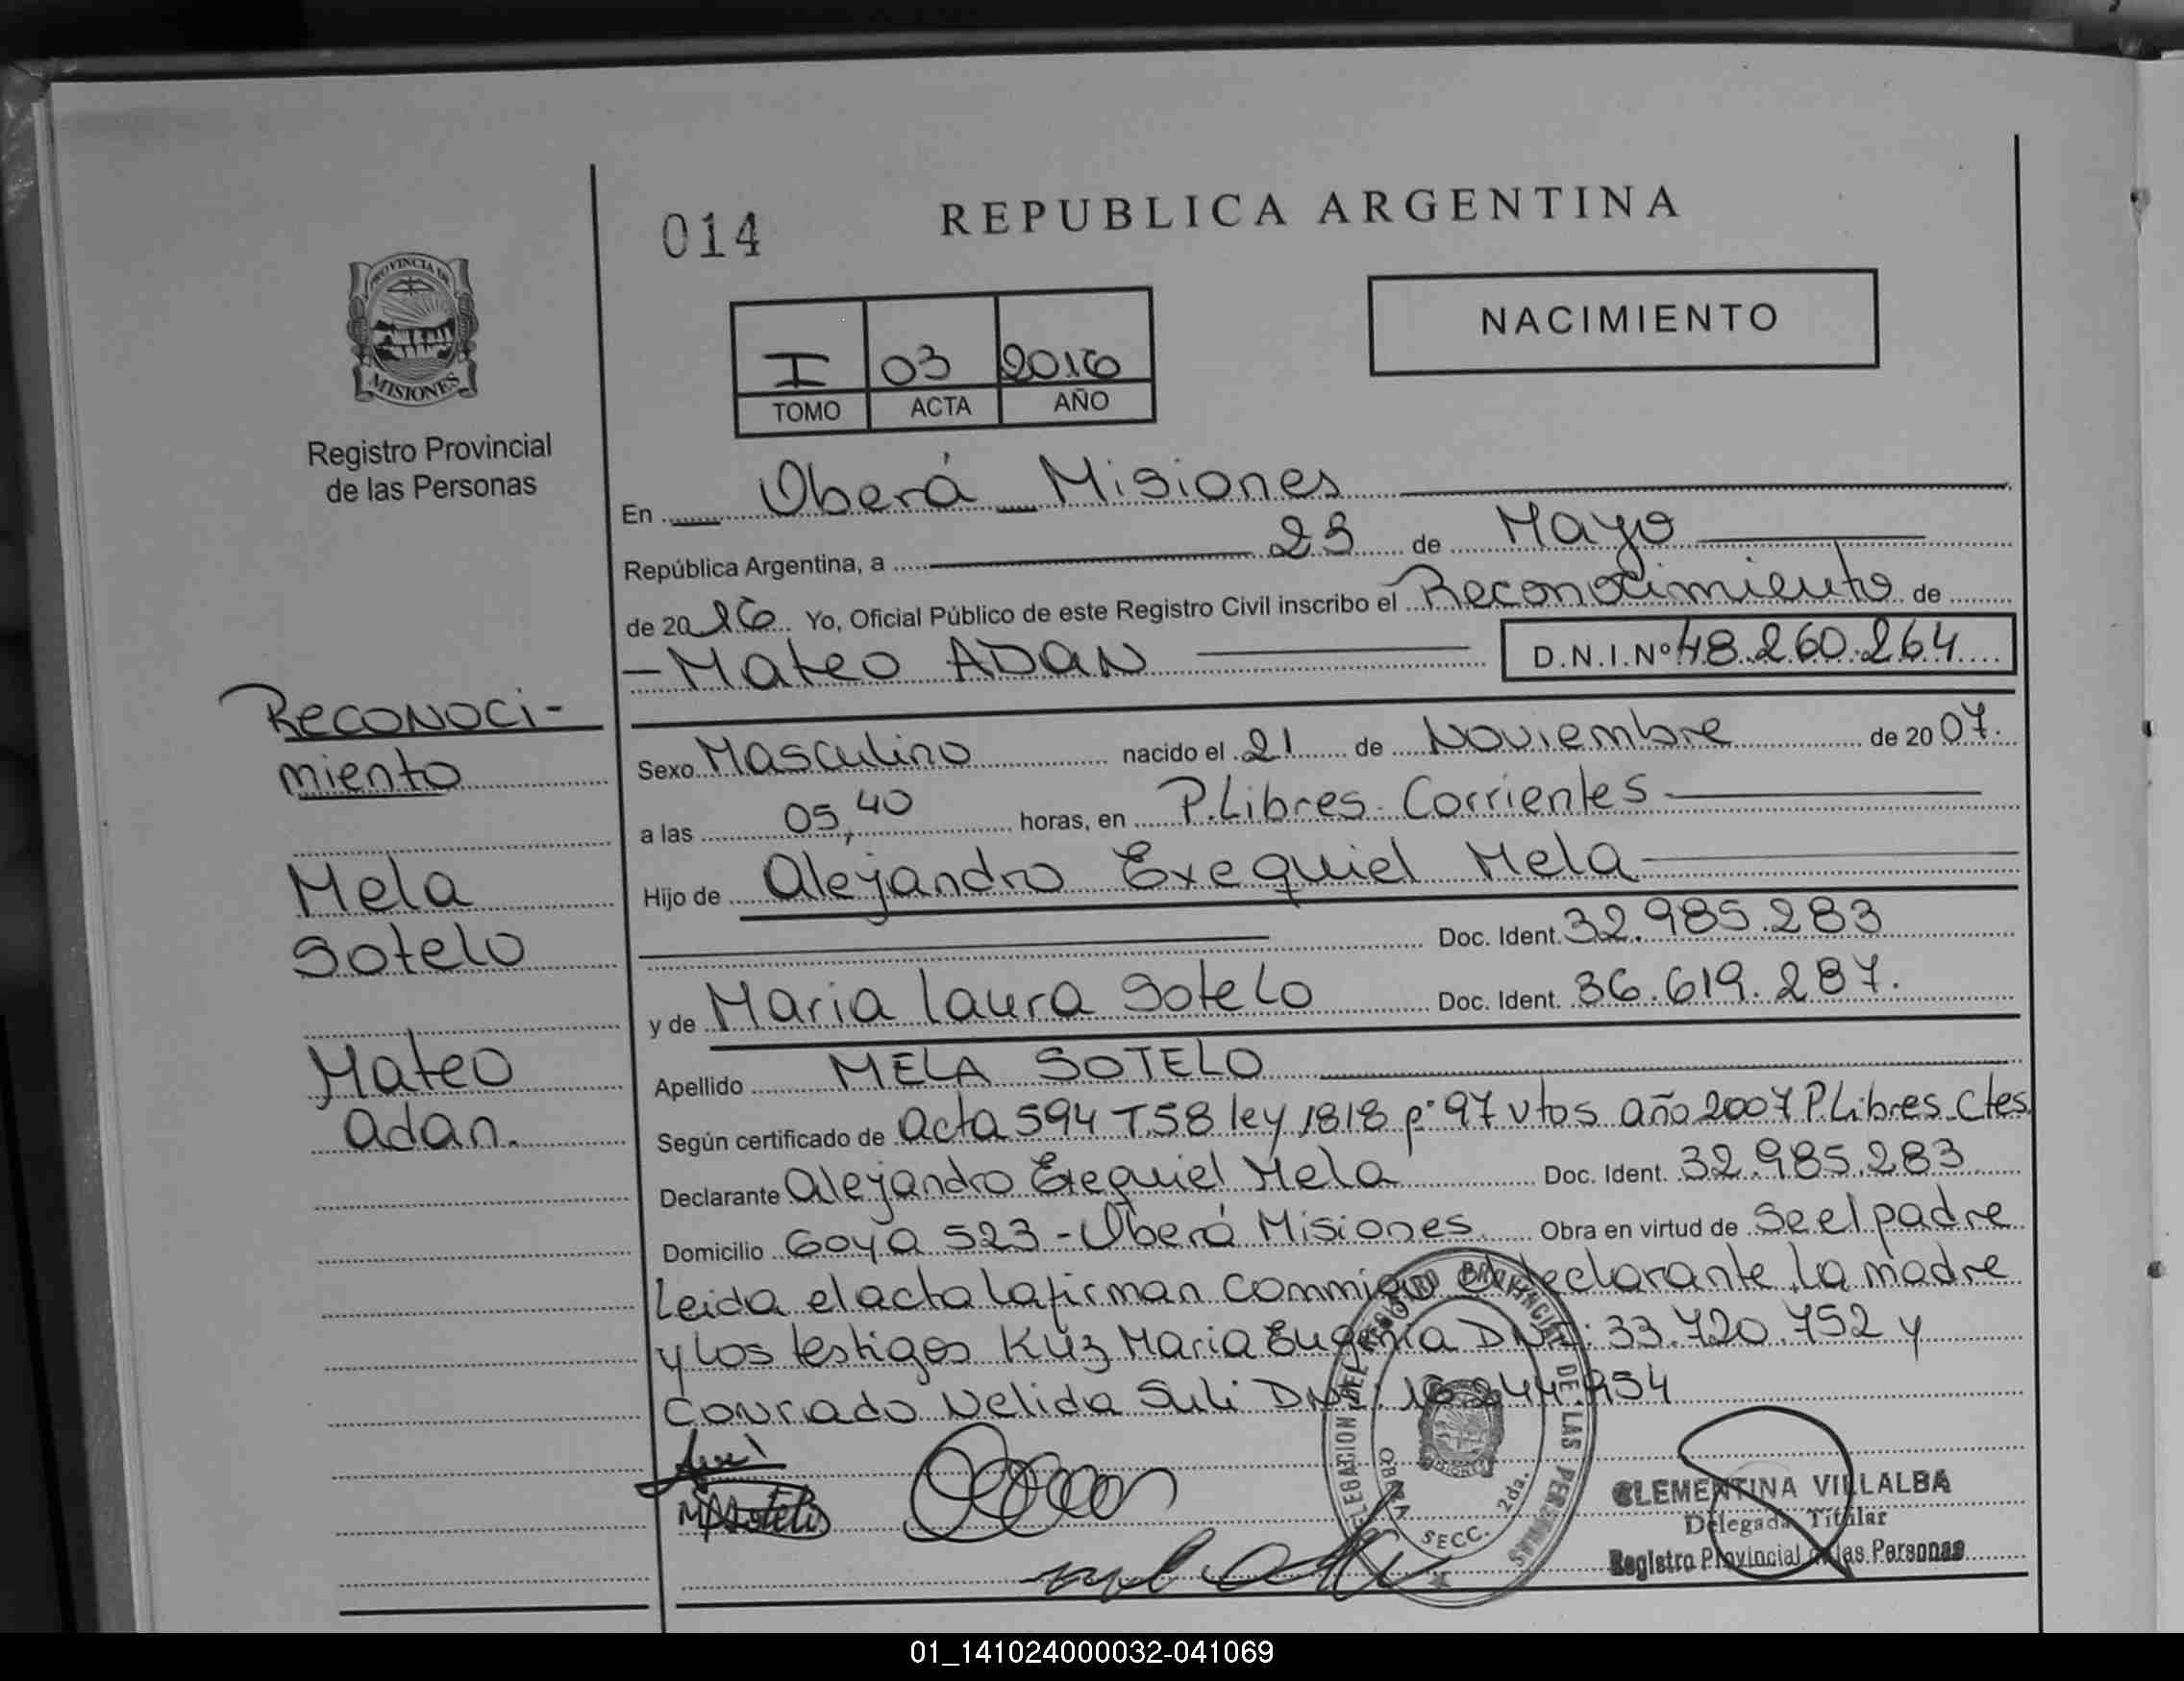 014
REPUBLICA ARGENTINA
PROVINCIA DE
MISIONES
Registro Provincial
de las Personas
NACIMIENTO
I 03 2016
TOMO ACTA AÑO
En Oberá Misiones
República Argentina, a 23 de Mayo
de 2016 Yo, Oficial Público de este Registro Civil inscribo el Reconocimiento de
- Mateo ADAN D.N.I. Nº 48.260.264
Reconoci-
miento
Mela
Sotelo
Mateo
adan.
Sexo Masculino nacido el 21 de Noviembre de 2007.
a las 05,40 horas, en P.Libres. Corrientes
Hijo de Alejandro Exequiel Mela
Doc. Ident. 32.985.283
y de Maria Laura Sotelo Doc. Ident. 36.619.287.
Apellido MELA SOTELO
Según certificado de acta 594 T.58 ley 1818 pº 97 vtos año 2007 P.Libres Ctes
Declarante Alejandro Exequiel Mela Doc. Ident. 32.985.283
Domicilio Goya 523 - Oberá Misiones Obra en virtud de Se el padre
Leida el acta la firman commigo el declarante, la madre
y los testigos Kuz Maria Eugenia DNI: 33.720.752 y
Conrado Nelida Suli DNI: 16.244.954
DELEGACION DEL REGISTRO PROVINCIAL DE LAS PERSONAS
OBERA SECC. 2da.
CLEMENTINA VILLALBA
Delegada Titular
Registro Provincial de las Personas
01_141024000032-041069